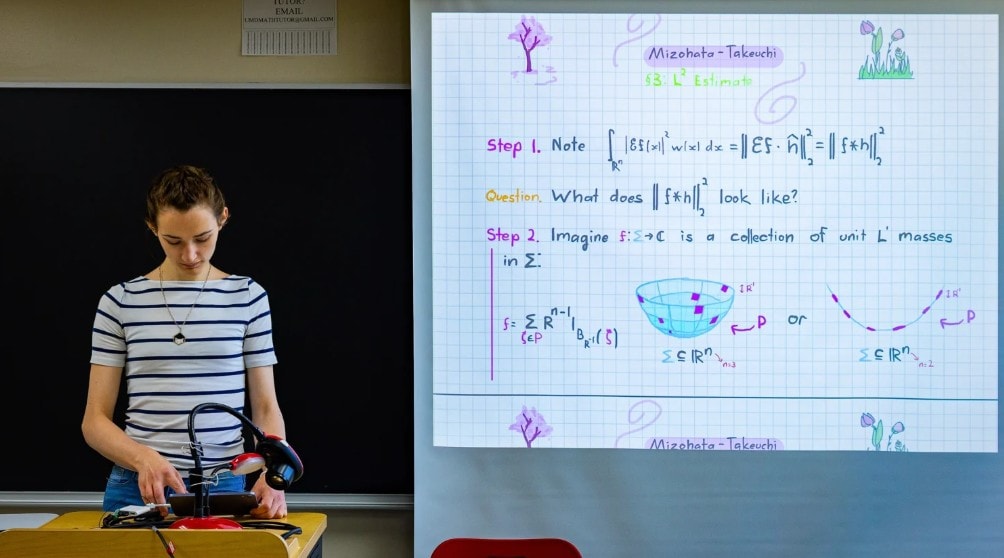 TUTOR?
EMAIL
UMDMATHTUTOR@GMAIL.COM
Mizohata-Takeuchi
§3: L² Estimate
Step 1. Note ∫_{ℝⁿ} |Ef(x)|² w(x) dx = ‖Ef · ĥ‖₂² = ‖f*h‖₂²
Question. What does ‖f*h‖₂² look like?
Step 2. Imagine f:Σ→ℂ is a collection of unit L¹ masses
in Σ:
f = Σ_{ζ∈P} R^{n-1} 1_{B_{R^{-1}}(ζ)}
P or P
Σ ⊆ ℝⁿ n=3
Σ ⊆ ℝⁿ n=2
Mizohata-Takeuchi